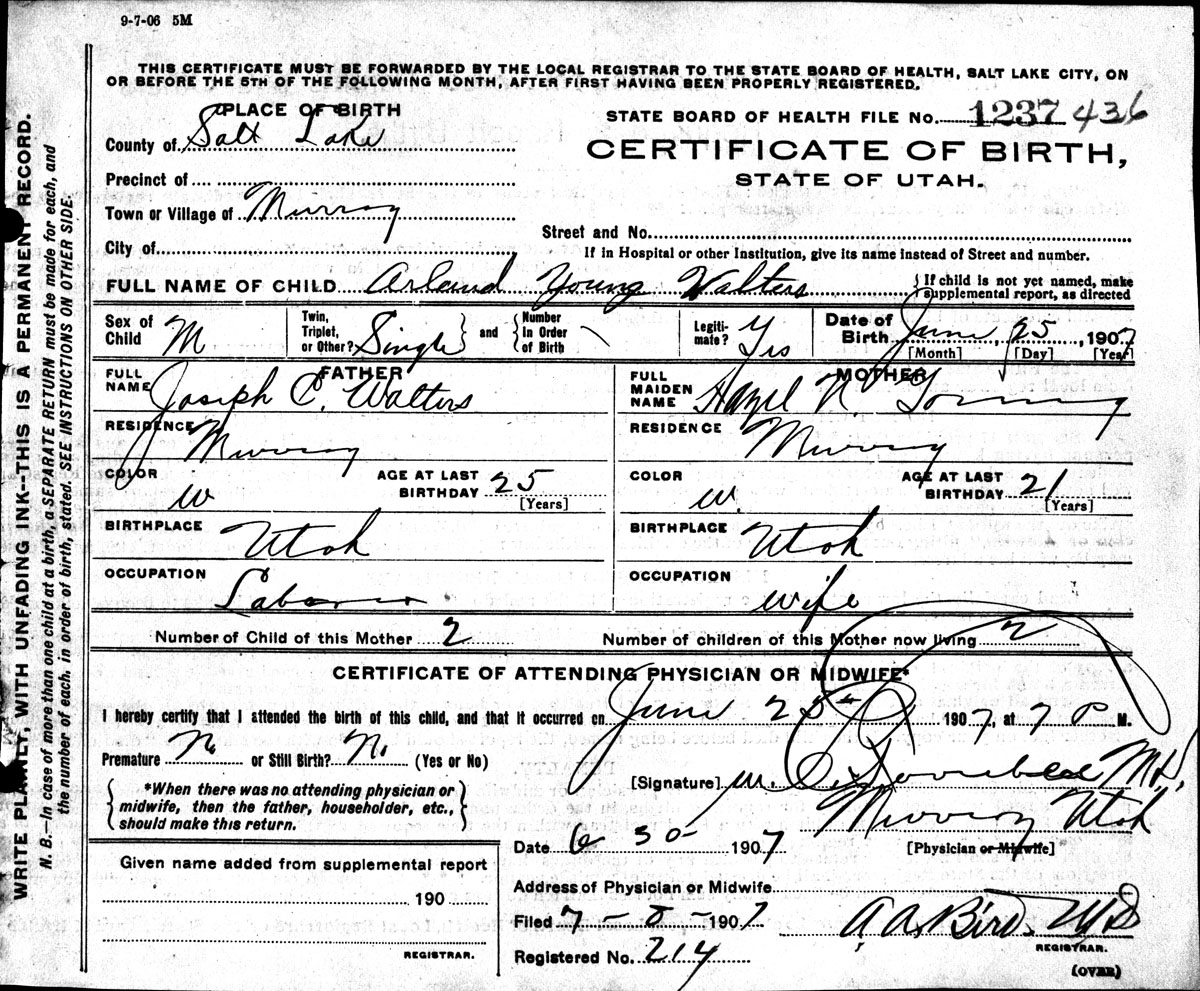 9-7-06 5M
THIS CERTIFICATE MUST BE FORWARDED BY THE LOCAL REGISTRAR TO THE STATE BOARD OF HEALTH, SALT LAKE CITY, ON
OR BEFORE THE 5TH OF THE FOLLOWING MONTH, AFTER FIRST HAVING BEEN PROPERLY REGISTERED.
PLACE OF BIRTH
County of Salt Lake
Precinct of
Town or Village of Murray
City of
STATE BOARD OF HEALTH FILE No. 1237 436
CERTIFICATE OF BIRTH,
STATE OF UTAH.
Street and No.
If in Hospital or other Institution, give its name instead of Street and number.
FULL NAME OF CHILD Arland Young Walters { If child is not yet named, make
supplemental report, as directed
Sex of Child M
Twin, Triplet, or Other? Single
and { Number in Order of Birth
Legiti-mate? Yes
Date of Birth June, 25, 1907
[Month] [Day] [Year]
FATHER
FULL NAME Joseph C. Walters
RESIDENCE Murray
COLOR W AGE AT LAST BIRTHDAY 25
[Years]
BIRTHPLACE Utah
OCCUPATION Laborer
MOTHER
FULL MAIDEN NAME Hazel N. Young
RESIDENCE Murray
COLOR W. AGE AT LAST BIRTHDAY 21
[Years]
BIRTHPLACE Utah
OCCUPATION Wife
Number of Child of this Mother 2 Number of children of this Mother now living 2
CERTIFICATE OF ATTENDING PHYSICIAN OR MIDWIFE*
I hereby certify that I attended the birth of this child, and that it occurred on June 25th 1907, at 7 P M.
Premature No or Still Birth? No. (Yes or No)
{ *When there was no attending physician or
midwife, then the father, householder, etc.,
should make this return. }
[Signature] M.D.
Murray Utah
Date 6 30- 1907 [Physician or Midwife]
Given name added from supplemental report
190
REGISTRAR.
Address of Physician or Midwife
Filed 7-8-1907 A. A. Bird. MD
REGISTRAR.
Registered No. 214
(OVER)
WRITE PLAINLY, WITH UNFADING INK--THIS IS A PERMANENT RECORD.
N. B.—In case of more than one child at a birth, a SEPARATE RETURN must be made for each, and
the number of each, in order of birth, stated. SEE INSTRUCTIONS ON OTHER SIDE.